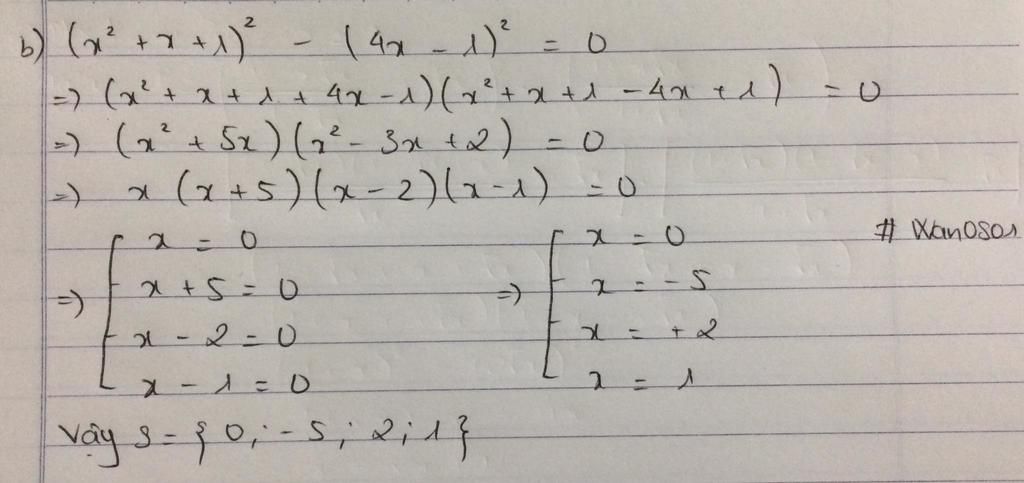 b) (x² + x + 1)² - (4x - 1)² = 0
=) (x² + x + 1 + 4x - 1)(x² + x + 1 - 4x + 1) = 0
=) (x² + 5x)(x² - 3x + 2) = 0
=) x (x + 5)(x - 2)(x - 1) = 0
=) [ x = 0
x + 5 = 0
x - 2 = 0
x - 1 = 0
=) [ x = 0
x = - 5
x = + 2
x = 1
Vậy S = { 0 ; - 5 ; 2 ; 1 }